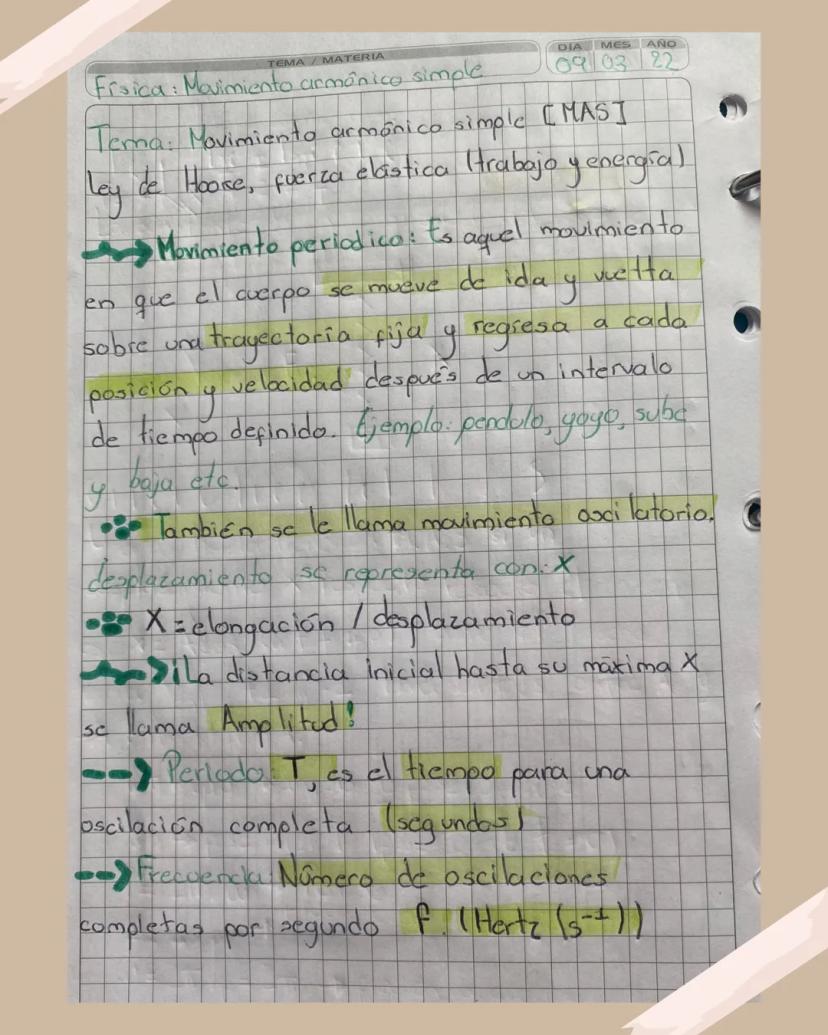 TEMA / MATERIA
DIA MES AÑO
Física: Movimiento armónico simple
09 03 22
Tema: Movimiento armónico simple [MAS]
ley de Hooke, fuerza elástica (trabajo y energía)
Movimiento periodico: Es aquel movimiento
en que el cuerpo se mueve de ida y vuelta
sobre una trayectoria fija y regresa a cada
posición y velocidad después de un intervalo
de tiempo definido. Ejemplo: pendulo, yoyo, sube
y baja etc.
También se le llama movimiento oscilatorio.
desplazamiento se representa con: X
X = elongación / desplazamiento
¡La distancia inicial hasta su máxima X
se llama Amplitud!
Periodo: T, es el tiempo para una
oscilación completa (segundos)
Frecuencia: Número de oscilaciones
completas por segundo f. (Hertz (s⁻¹))